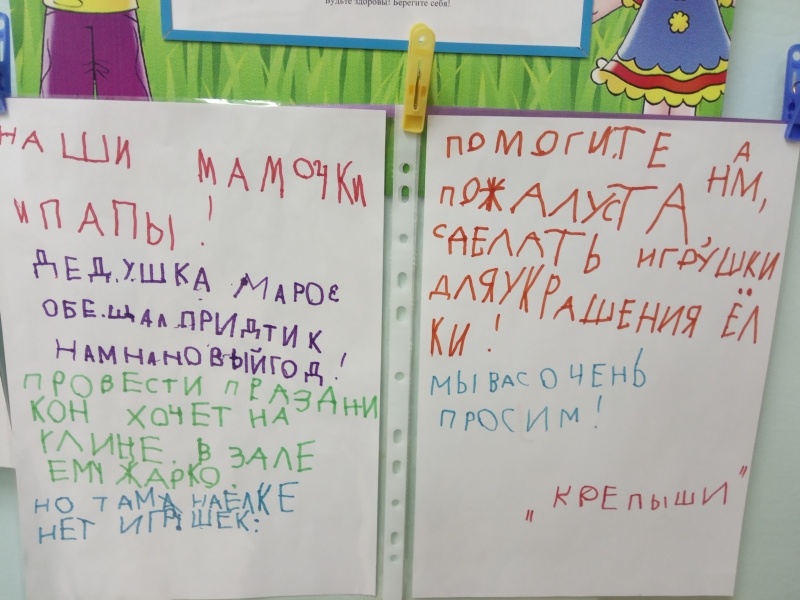 Будьте здоровы! Берегите себя!
НАШИ МАМОЧКИ
И ПАПЫ!
ДЕДУШКА МАРОЕ
ОБЕЩАЛ ПРИДТИ К
НАМ НА НОВЫЙ ГОД!
ПРОВЕСТИ ПРАЗДНИ
КОН ХОЧЕТ НА
УЛИЦЕ. В ЗАЛЕ
ЕМУ ЖАРКО.
НО ТАМА НАЕЛКЕ
НЕТ ИГРУШЕК:
ПОМОГИТЕ А
НМ,
ПОЖАЛУСТА,
СДЕЛАТЬ ИГРУШКИ
ДЛЯ УКРАШЕНИЯ ЁЛ
КИ!
МЫ ВАС ОЧЕНЬ
ПРОСИМ!
„КРЕПЫШИ"